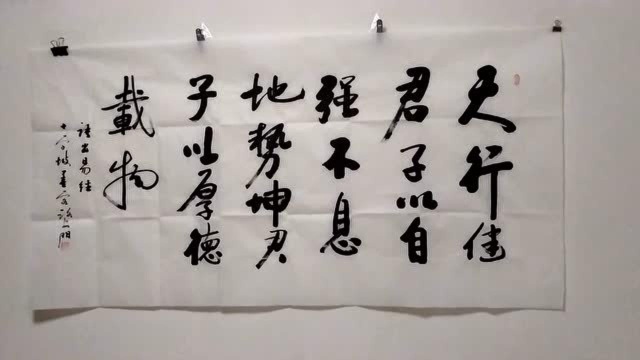 天行健
君子以自
强不息
地勢坤君
子以厚德
載物
語出易经